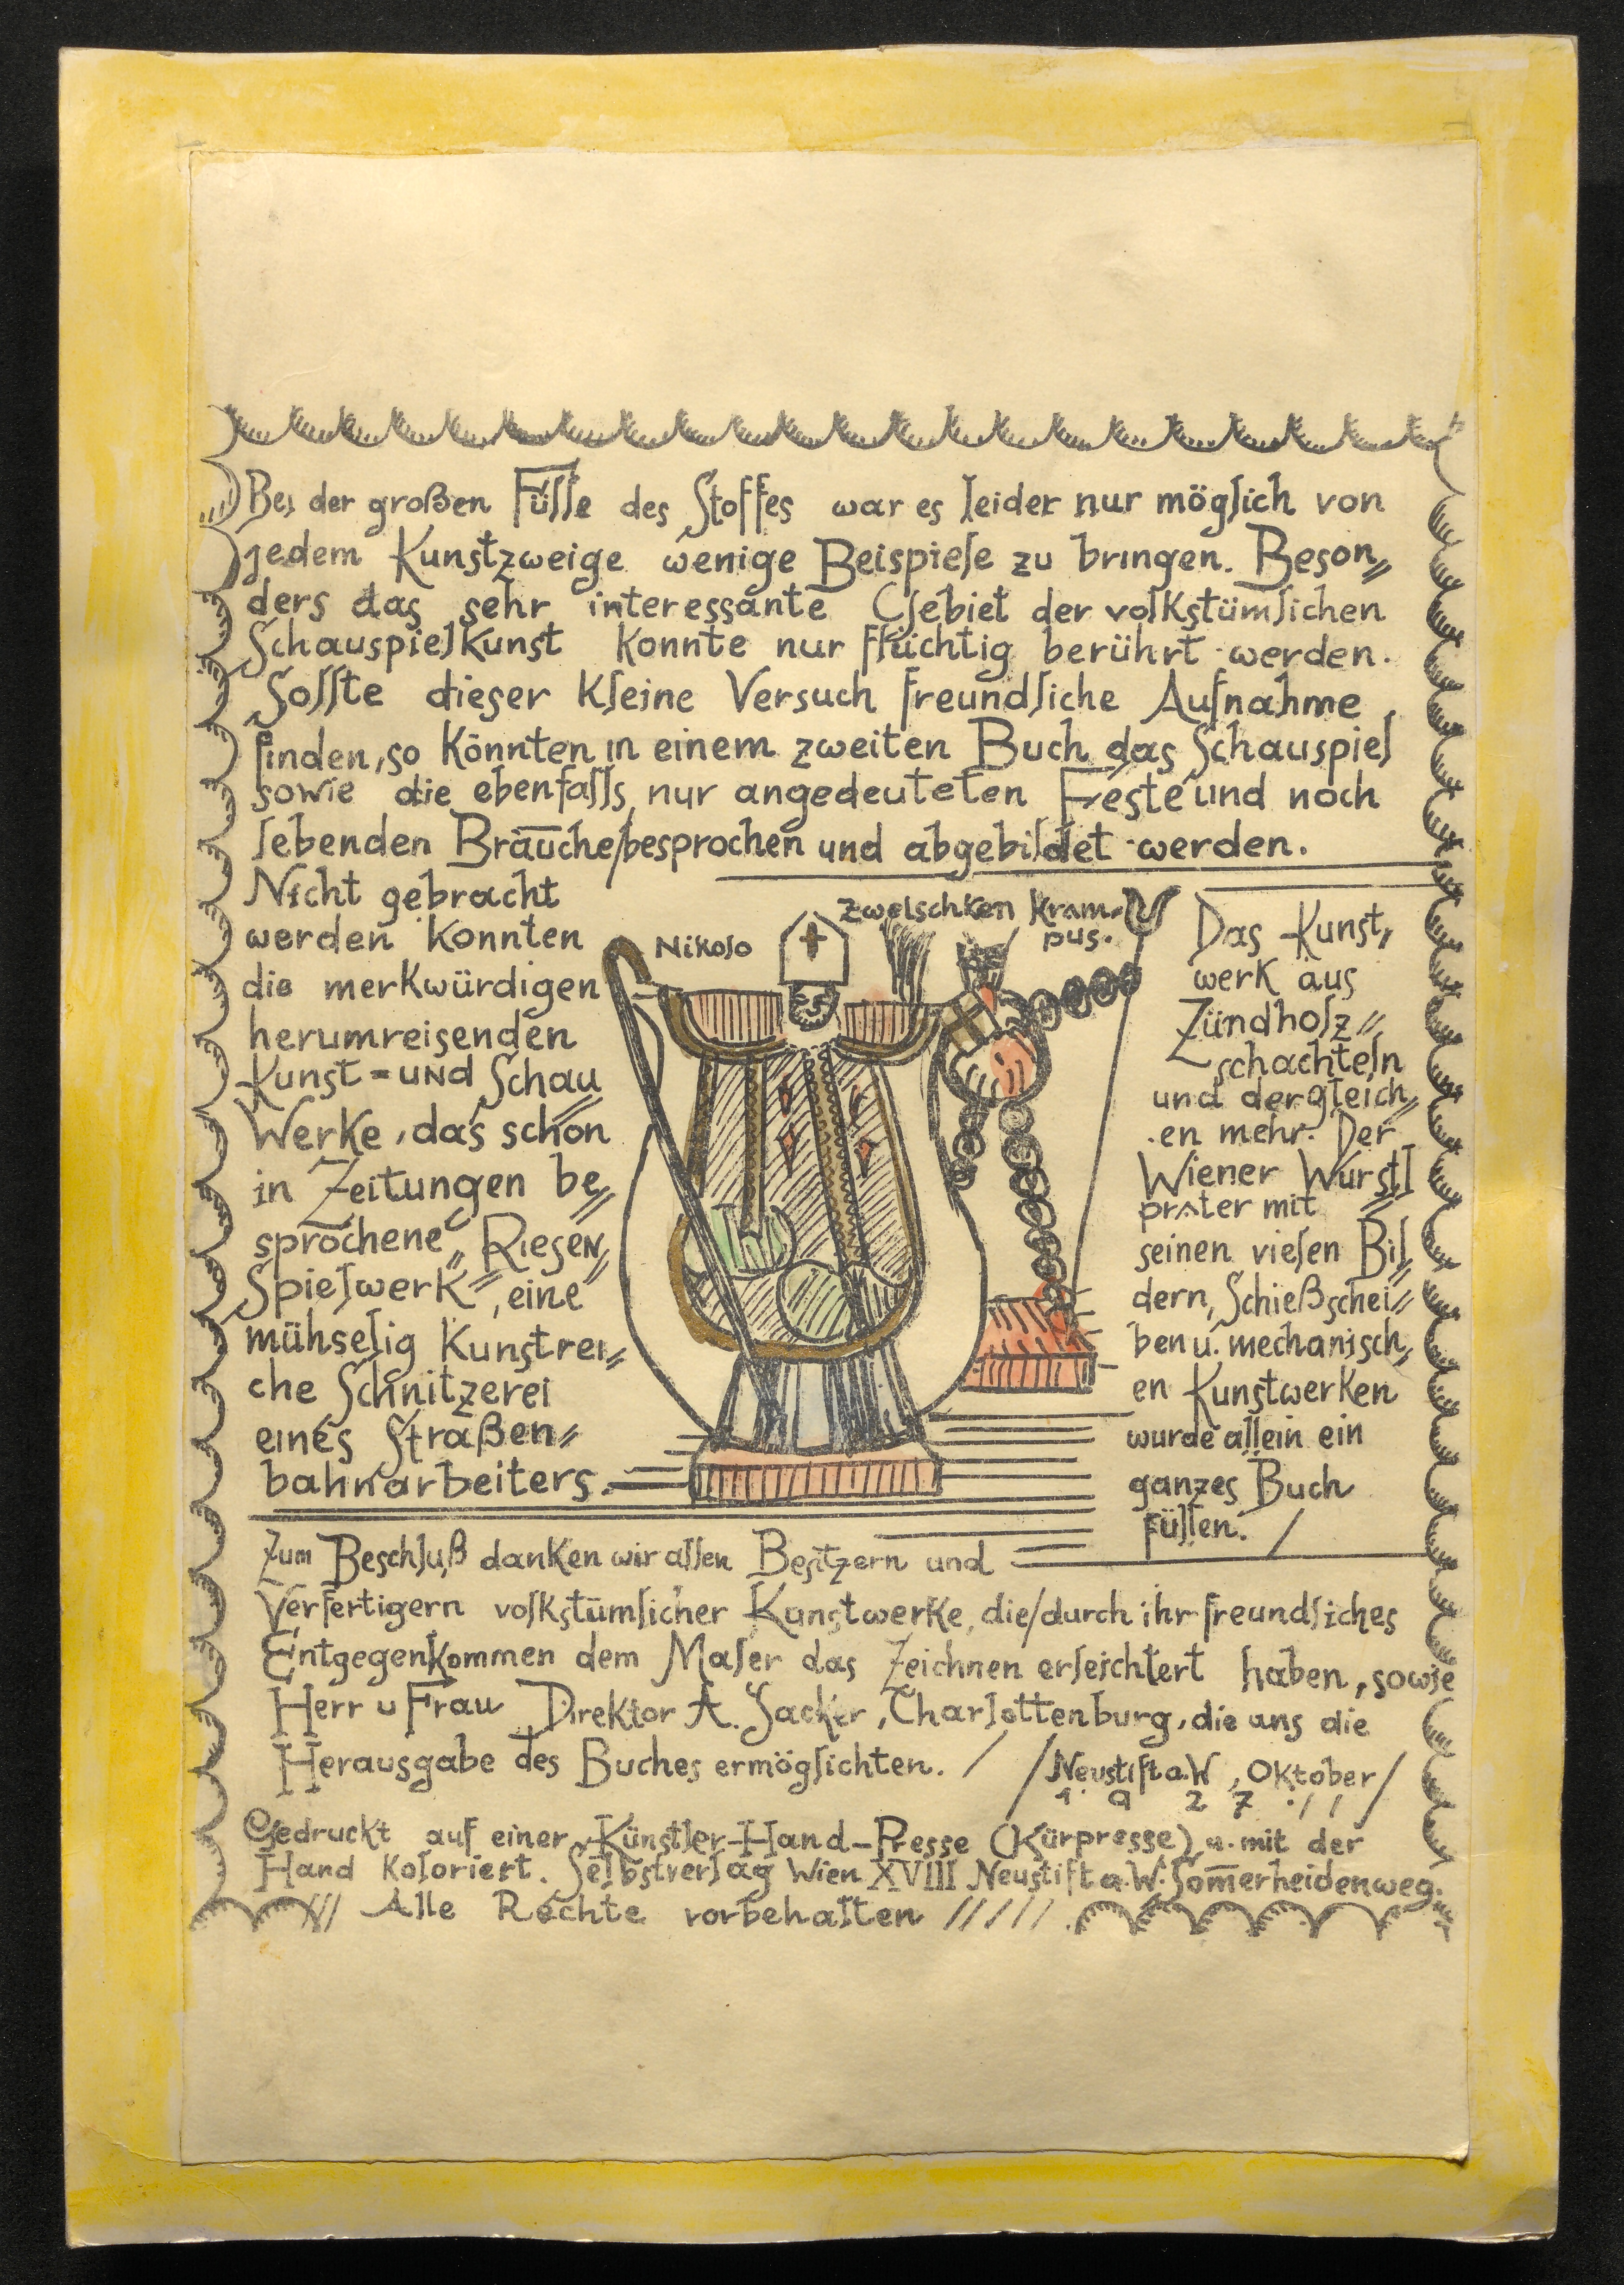 Bei der großen Fülle des Stoffes war es leider nur möglich von
jedem Kunstzweige wenige Beispiele zu bringen. Beson=
ders das sehr interessante Gebiet der volkstümlichen
Schauspielkunst konnte nur flüchtig berührt werden.
Sollte dieser kleine Versuch freundliche Aufnahme
finden, so könnten in einem zweiten Buch das Schauspiel
sowie die ebenfalls nur angedeuteten Feste und noch
lebenden Bräuche/besprochen und abgebildet werden.
Nicht gebracht
werden konnten
die merkwürdigen
herumreisenden
Kunst=und Schau=
Werke, das schon
in Zeitungen be=
sprochene „Riesen=
Spielwerk", eine
mühselig kunstrei=
che Schnitzerei
eines Straßen=
bahnarbeiters.
Nikolo
Zwetschken Kram=
pus.
Das Kunst=
werk aus
Zündholz=
schachteln
und dergleich=
en mehr. Der
Wiener Wurstl=
prater mit
seinen vielen Bil=
dern, Schießschei=
ben u. mechanisch=
en Kunstwerken
wurde allein ein
ganzes Buch
füllen. /
Zum Beschluß danken wir allen Besitzern und
Verfertigern volkstümlicher Kunstwerke, die/durch ihr freundliches
Entgegenkommen dem Maler das Zeichnen erleichtert haben, sowie
Herr u Frau Direktor A. Sacker, Charlottenburg, die uns die
Herausgabe des Buches ermöglichten. /
/Neustift a.W, Oktober/
1927
Gedruckt auf einer Künstler-Hand-Presse (Kürpresse) u. mit der
Hand koloriert. Selbstverlag Wien XVIII Neustift a.W. Som̄erheidenweg.
/// Alle Rechte vorbehalten /////